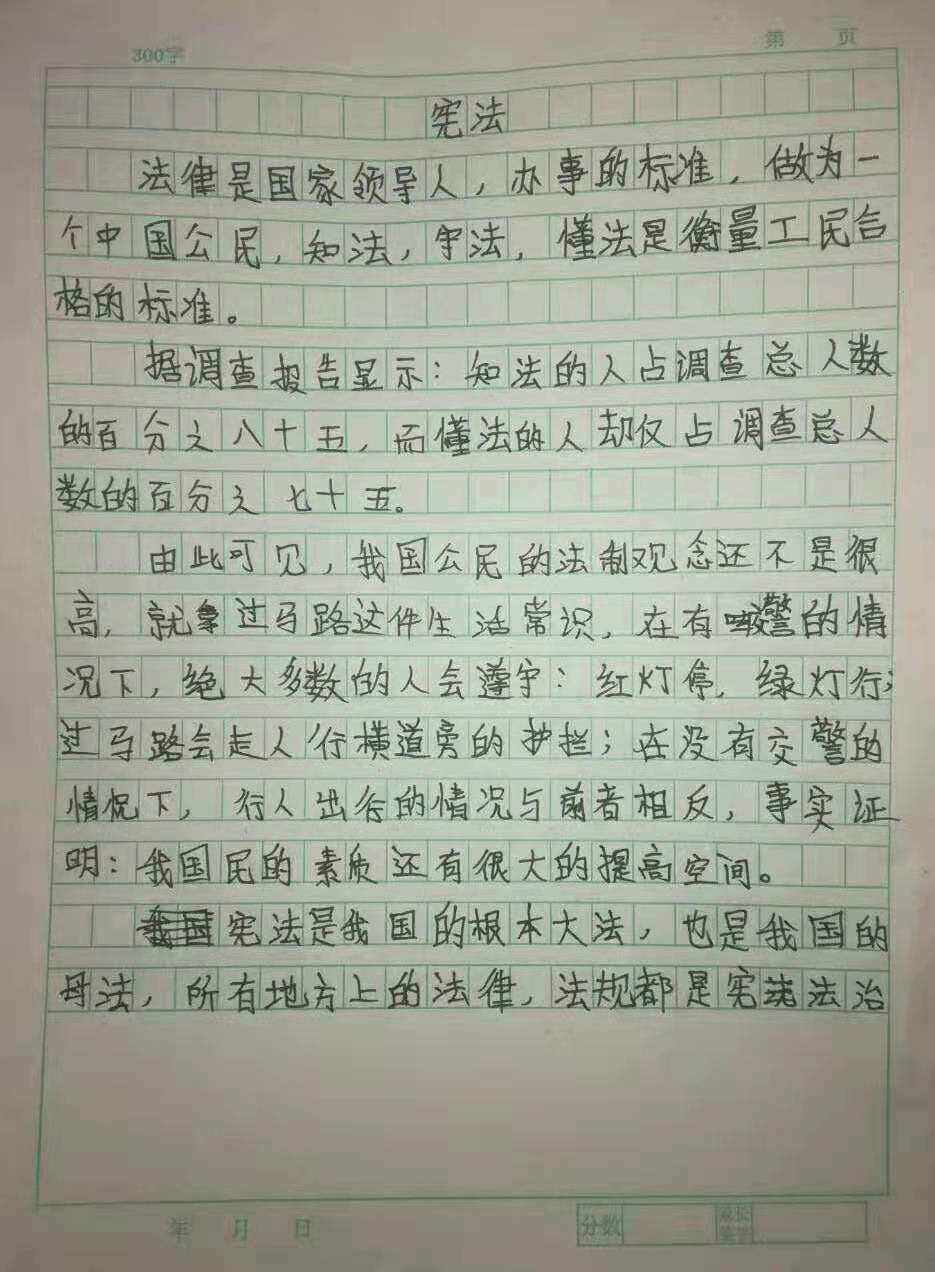 300字
第 页
宪法
法律是国家领导人，办事的标准，做为一
个中国公民，知法，守法，懂法是衡量工民合
格的标准。
据调查报告显示：知法的人占调查总人数
的百分之八十五，而懂法的人却仅占调查总人
数的百分之七十五。
由此可见，我国公民的法制观念还不是很
高，就拿过马路这件生活常识，在有警的情
况下，绝大多数的人会遵守：红灯停，绿灯行；
过马路会走人行横道旁的护拦；在没有交警的
情况下，行人出行的情况与前者相反，事实证
明：我国民的素质还有很大的提高空间。
宪法是我国的根本大法，也是我国的
母法，所有地方上的法律，法规都是宪法治
年 月 日
分数
家长
签字